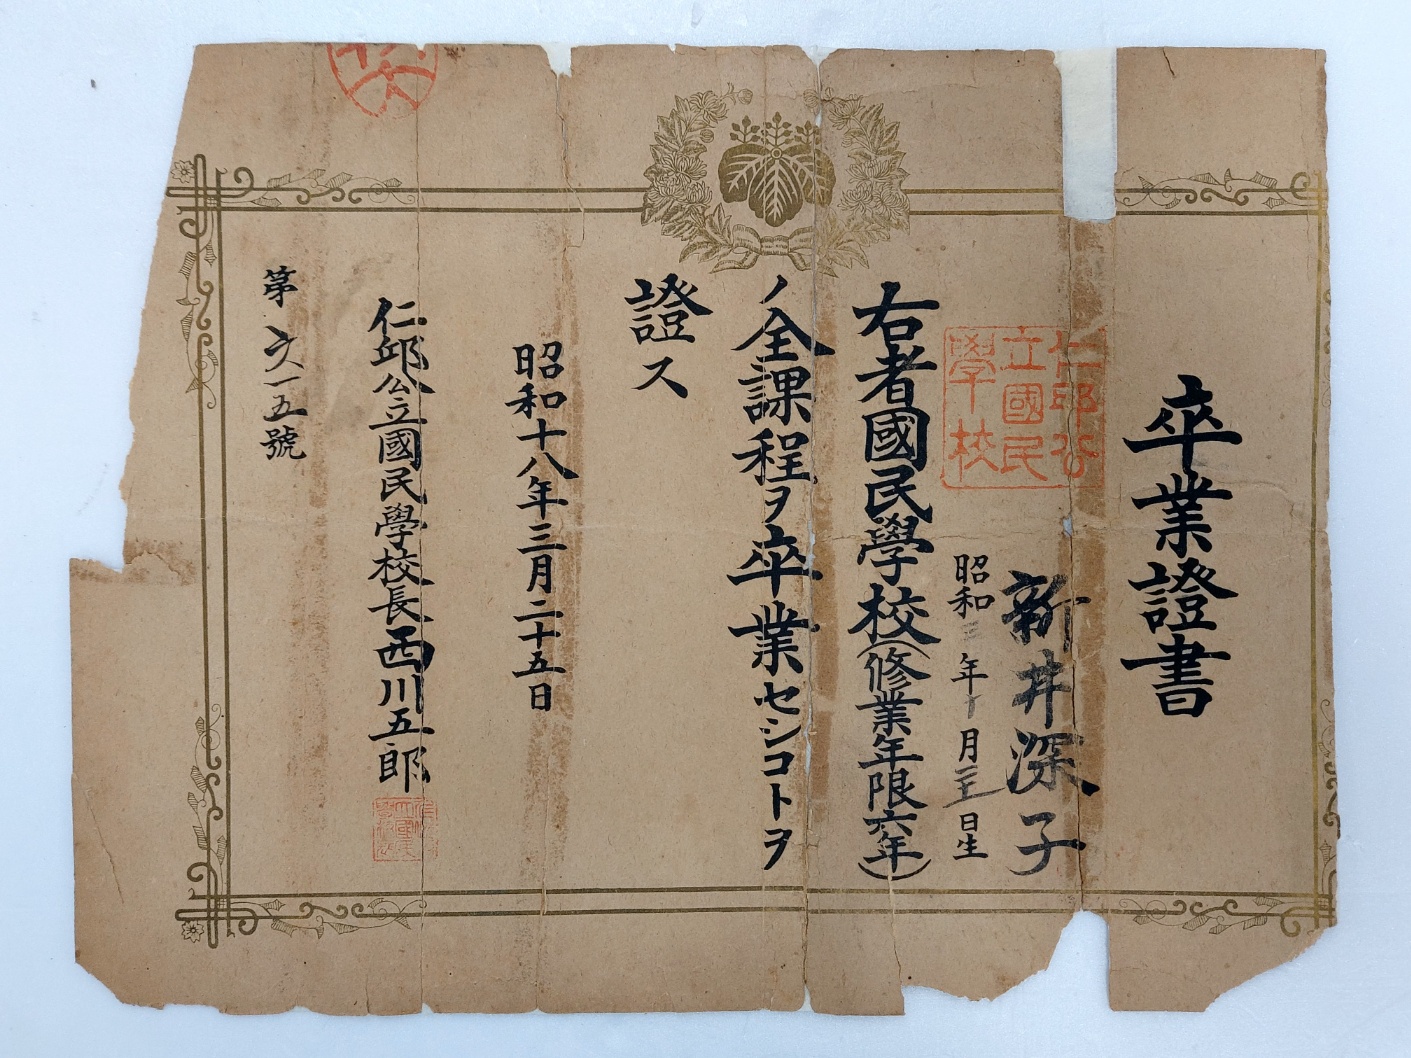 卒業證書
仁邱公
立國民
學校
新井深子
昭和三年十月二十一日生
右者國民學校(修業年限六年)
ノ全課程ヲ卒業セシコトヲ
證ス
昭和十八年三月二十五日
仁邱公立國民學校長西川五郎
第六一五號